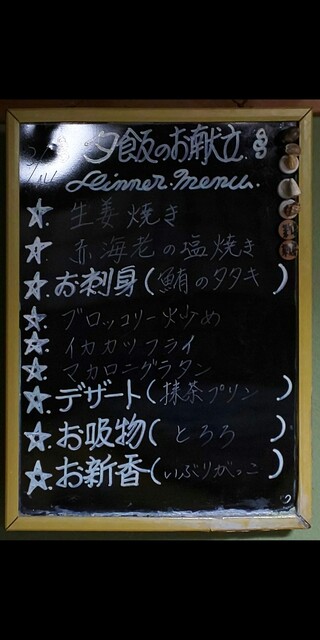 夕飯のお献立
Dinner.menu.
3/14
☆. 生姜焼き
☆. 赤海老の塩焼き
☆. お刺身(鮪のタタキ)
☆. ブロッコリー炒め
☆. イカカツフライ
☆. マカロニグラタン
☆. デザート(抹茶プリン)
☆. お吸物(とろろ)
☆. お新香(いぶりがっこ)